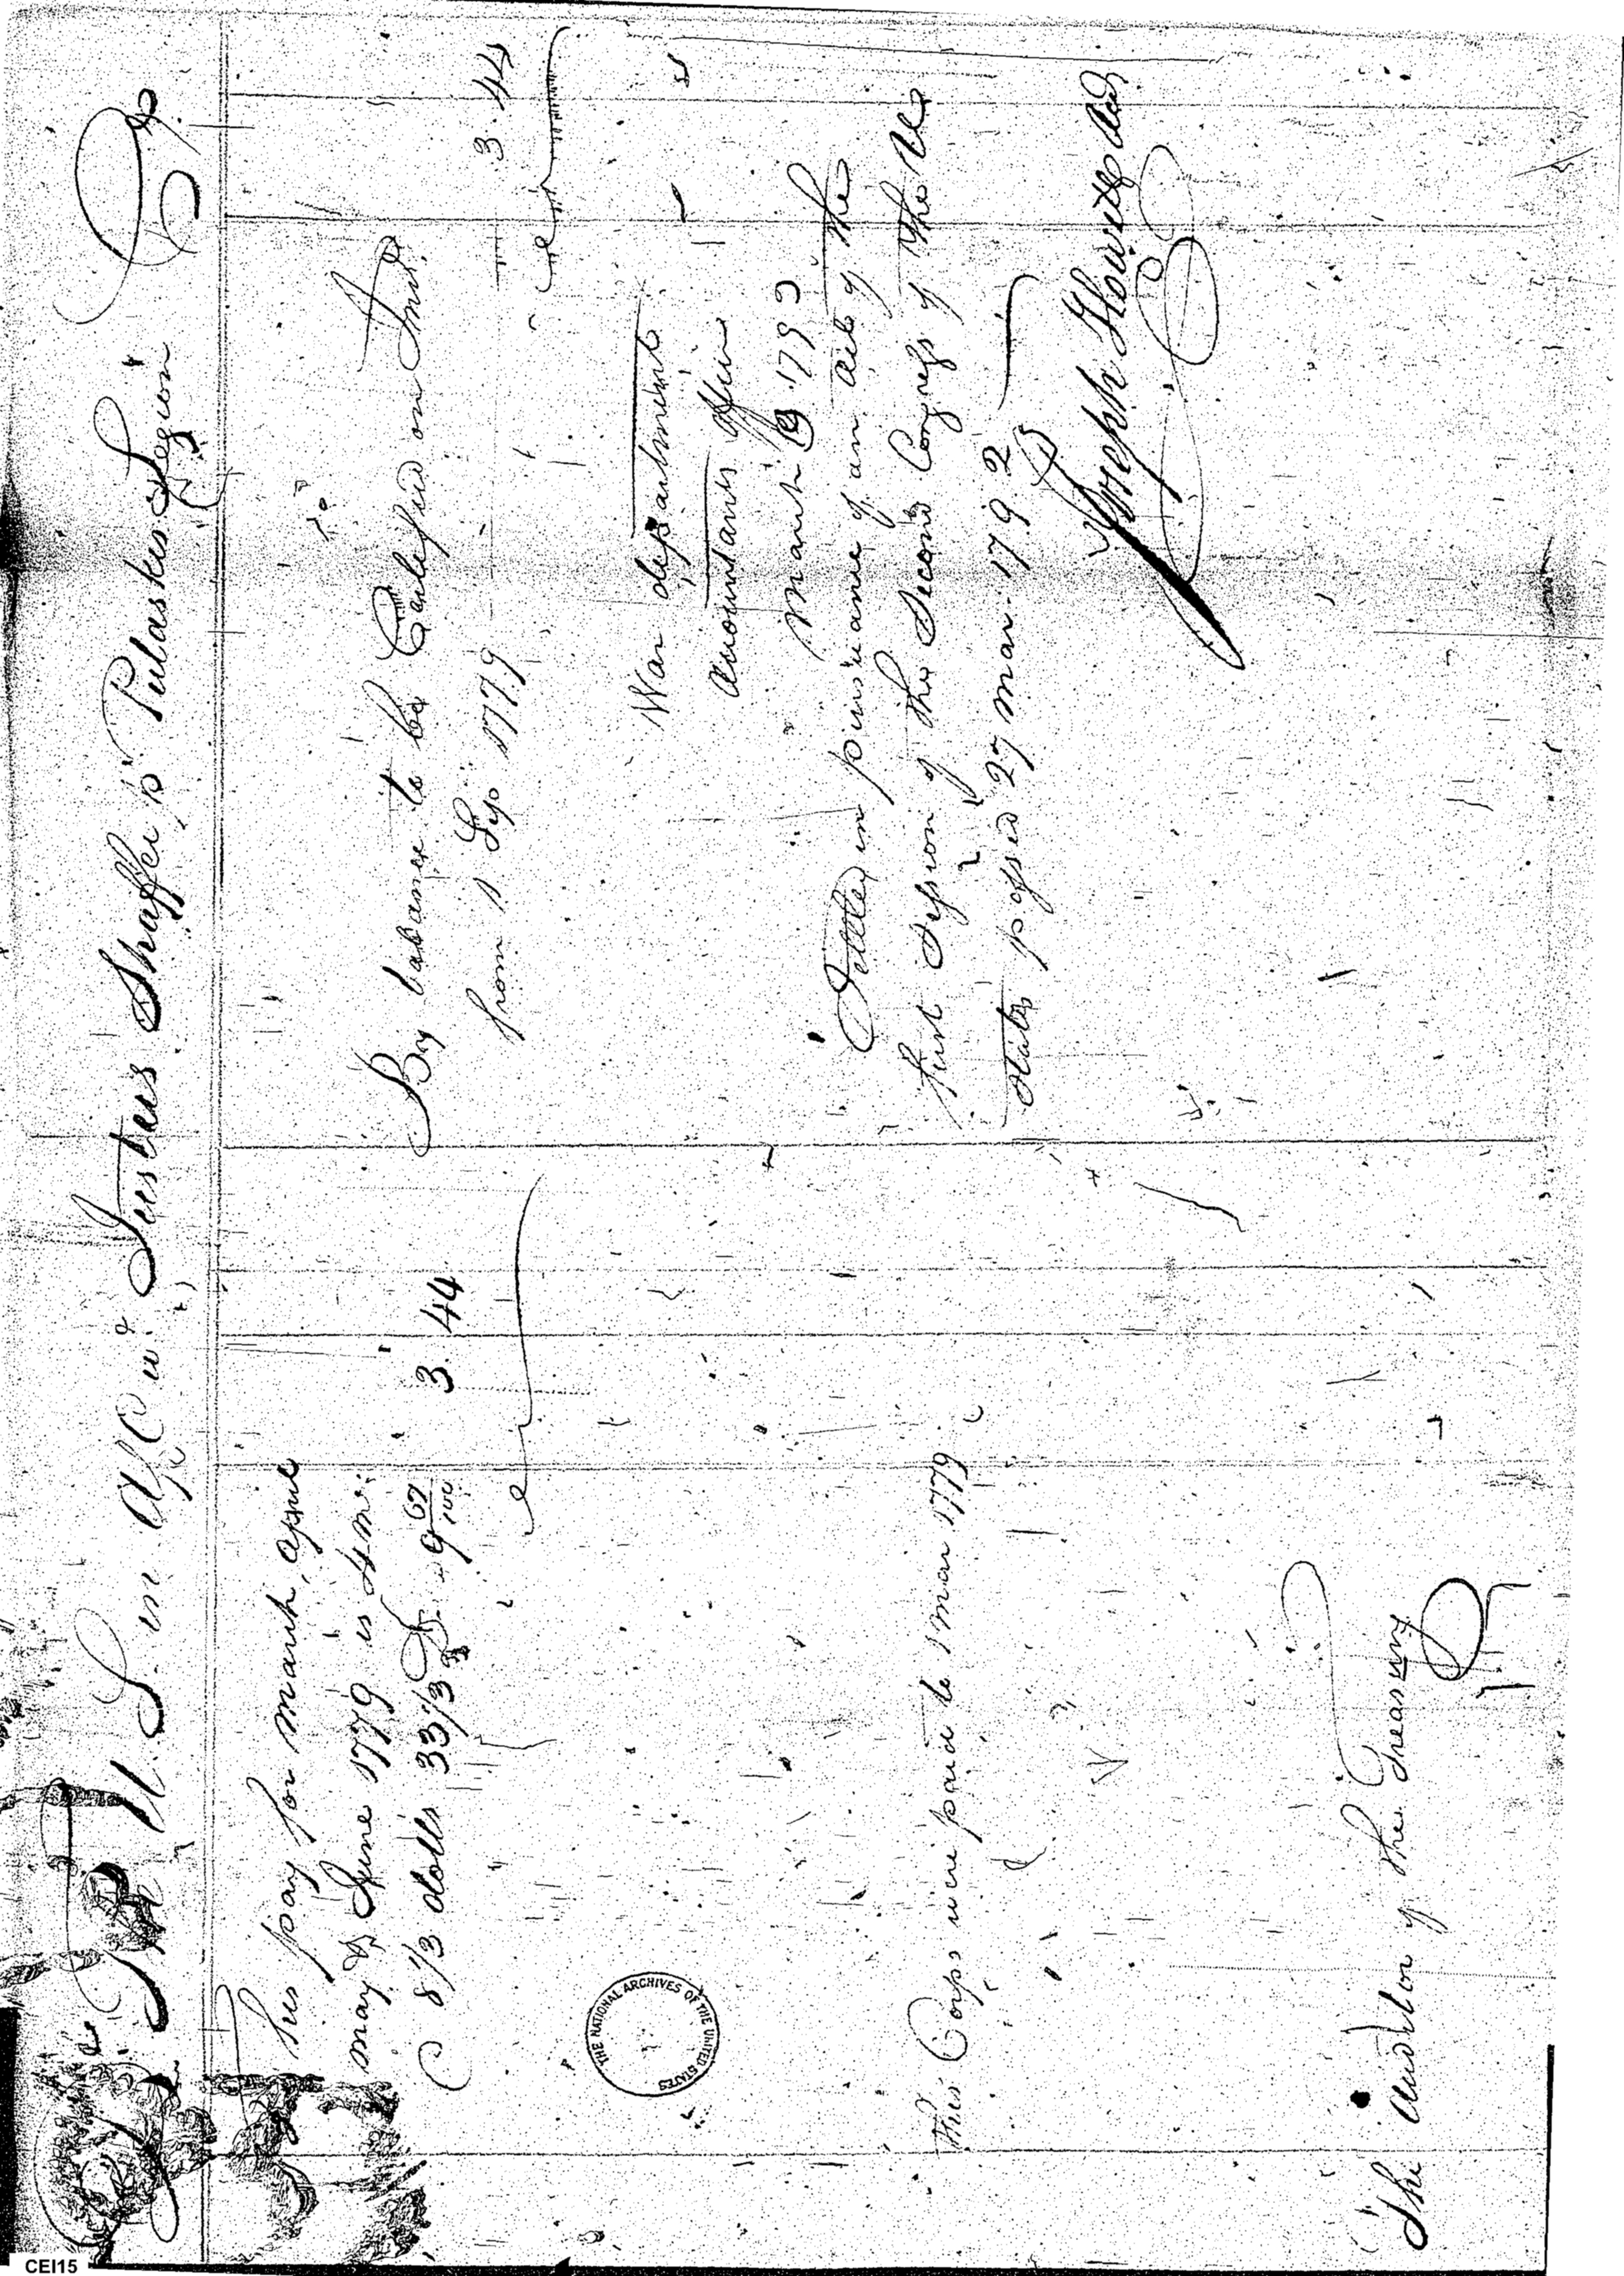 The U. S. in a/c wt. Justus Shaffer pt. Pulaskus Legion
This pay for march, april
may & June 1779 is 4 ms.
8 1/3 dolls 33 1/3 9 67/100 3. 44
This Corps were paid to 1 mar 1779
The Auditor of the Treasury
By balance to be Certified on Int.
from 1 1779 3. 44
War department
Accountants office
March 1793
Settled in pursuance of an act of the
first Session of the Second Congress of the U
States passed 27 mar. 1792
Joseph Howell
THE NATIONAL ARCHIVES OF THE UNITED STATES
CEI15